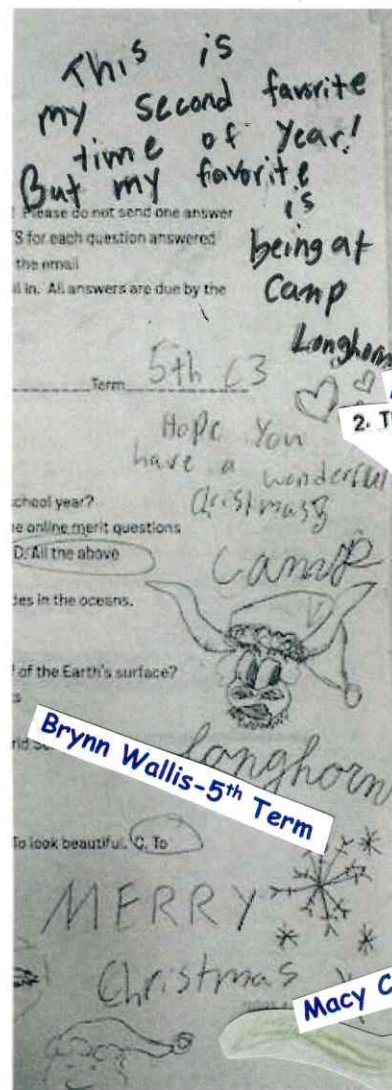 This is
my second favorite
time of Year!
But my favorite
is
being at
Camp
Longhorn
! Please do not send one answer
S for each question answered
the email
il in. All answers are due by the
Term 5th C3
2. T
Hope You
have a wonderful
Cristmas
school year?
e online merit questions
D. All the above
Camp
des in the oceans.
of the Earth's surface?
s
Longhorn
Brynn Wallis-5th Term
To look beautiful. C. To
MERRY
Christmas
Macy C